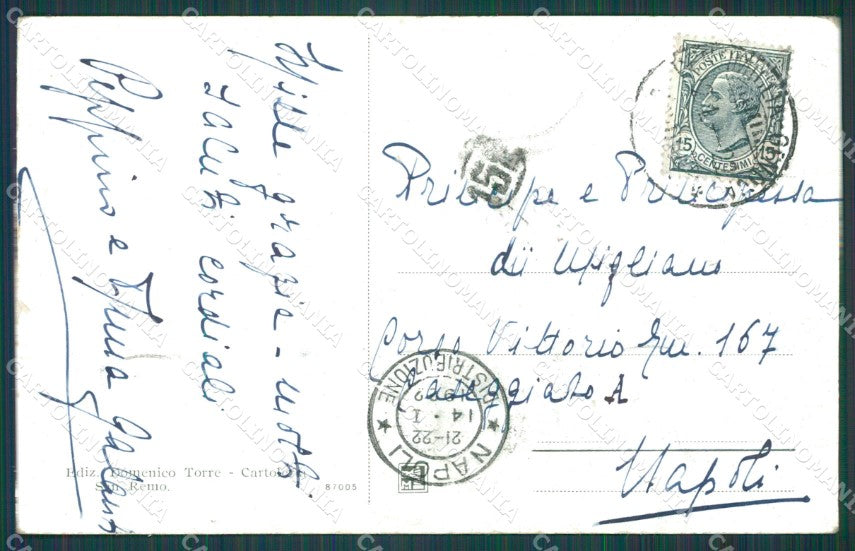 Mille grazie - molti
saluti cordiali
Peppino e
Principe e Principessa
di Migliano
Corso Vittorio Em. 167
Paleggiato A
Napoli
POSTE ITALIANE
15 CENTESIMI 15
15L
NAPOLI
DISTRIBUZIONE
21-22
14 · 1
Ediz. Domenico Torre - Cartoleria
San Remo.
87005
CARTOLINOMANIA